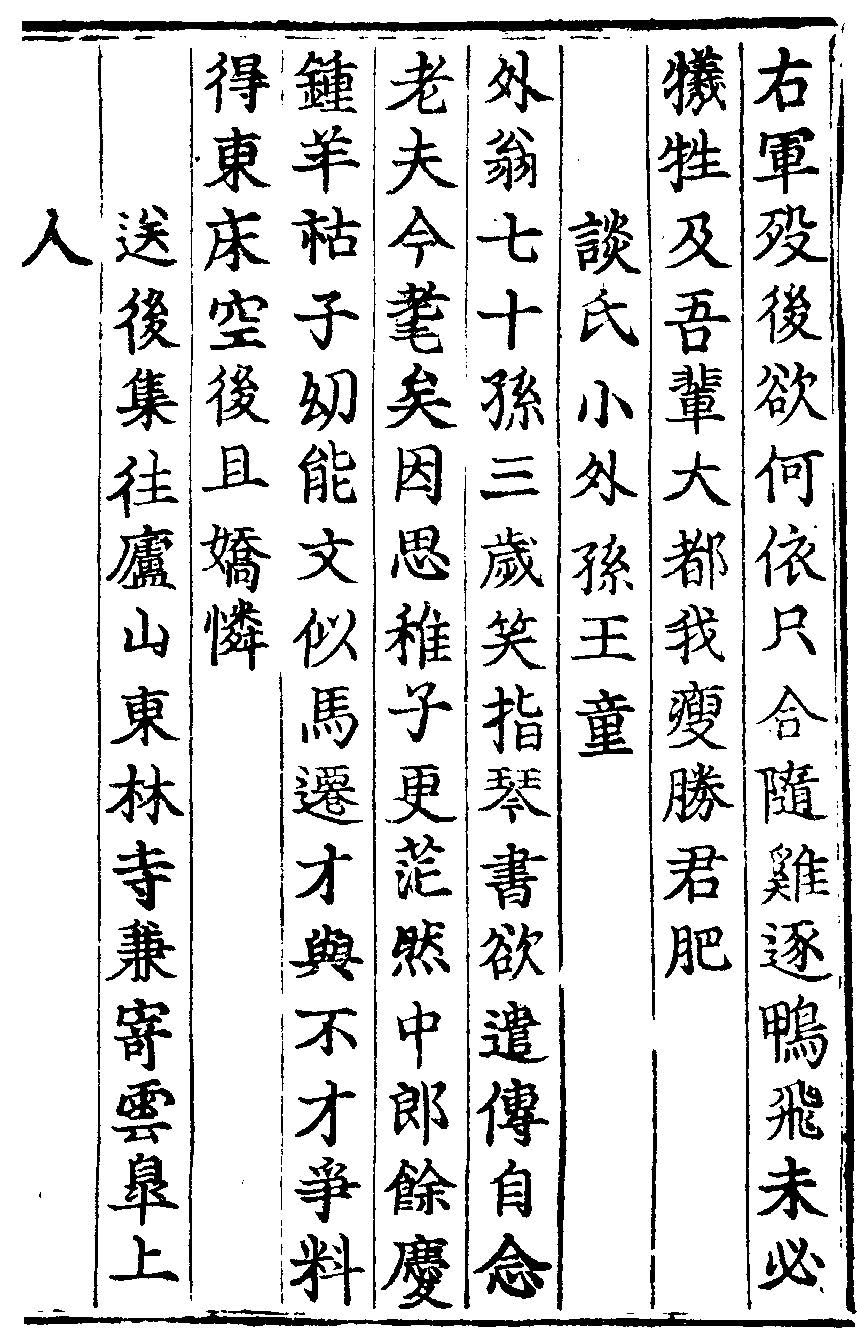 右軍歿後欲何依只合隨雞逐鴨飛未必
犧牲及吾輩大都我瘦勝君肥
談氏小外孫王童
外翁七十孫三歲笑指琴書欲遣傳自念
老夫今耄矣因思稚子更茫然中郎餘慶
鍾羊祜子幼能文似馬遷才與不才爭料
得東床空後且嬌憐
送後集往廬山東林寺兼寄雲臯上
人